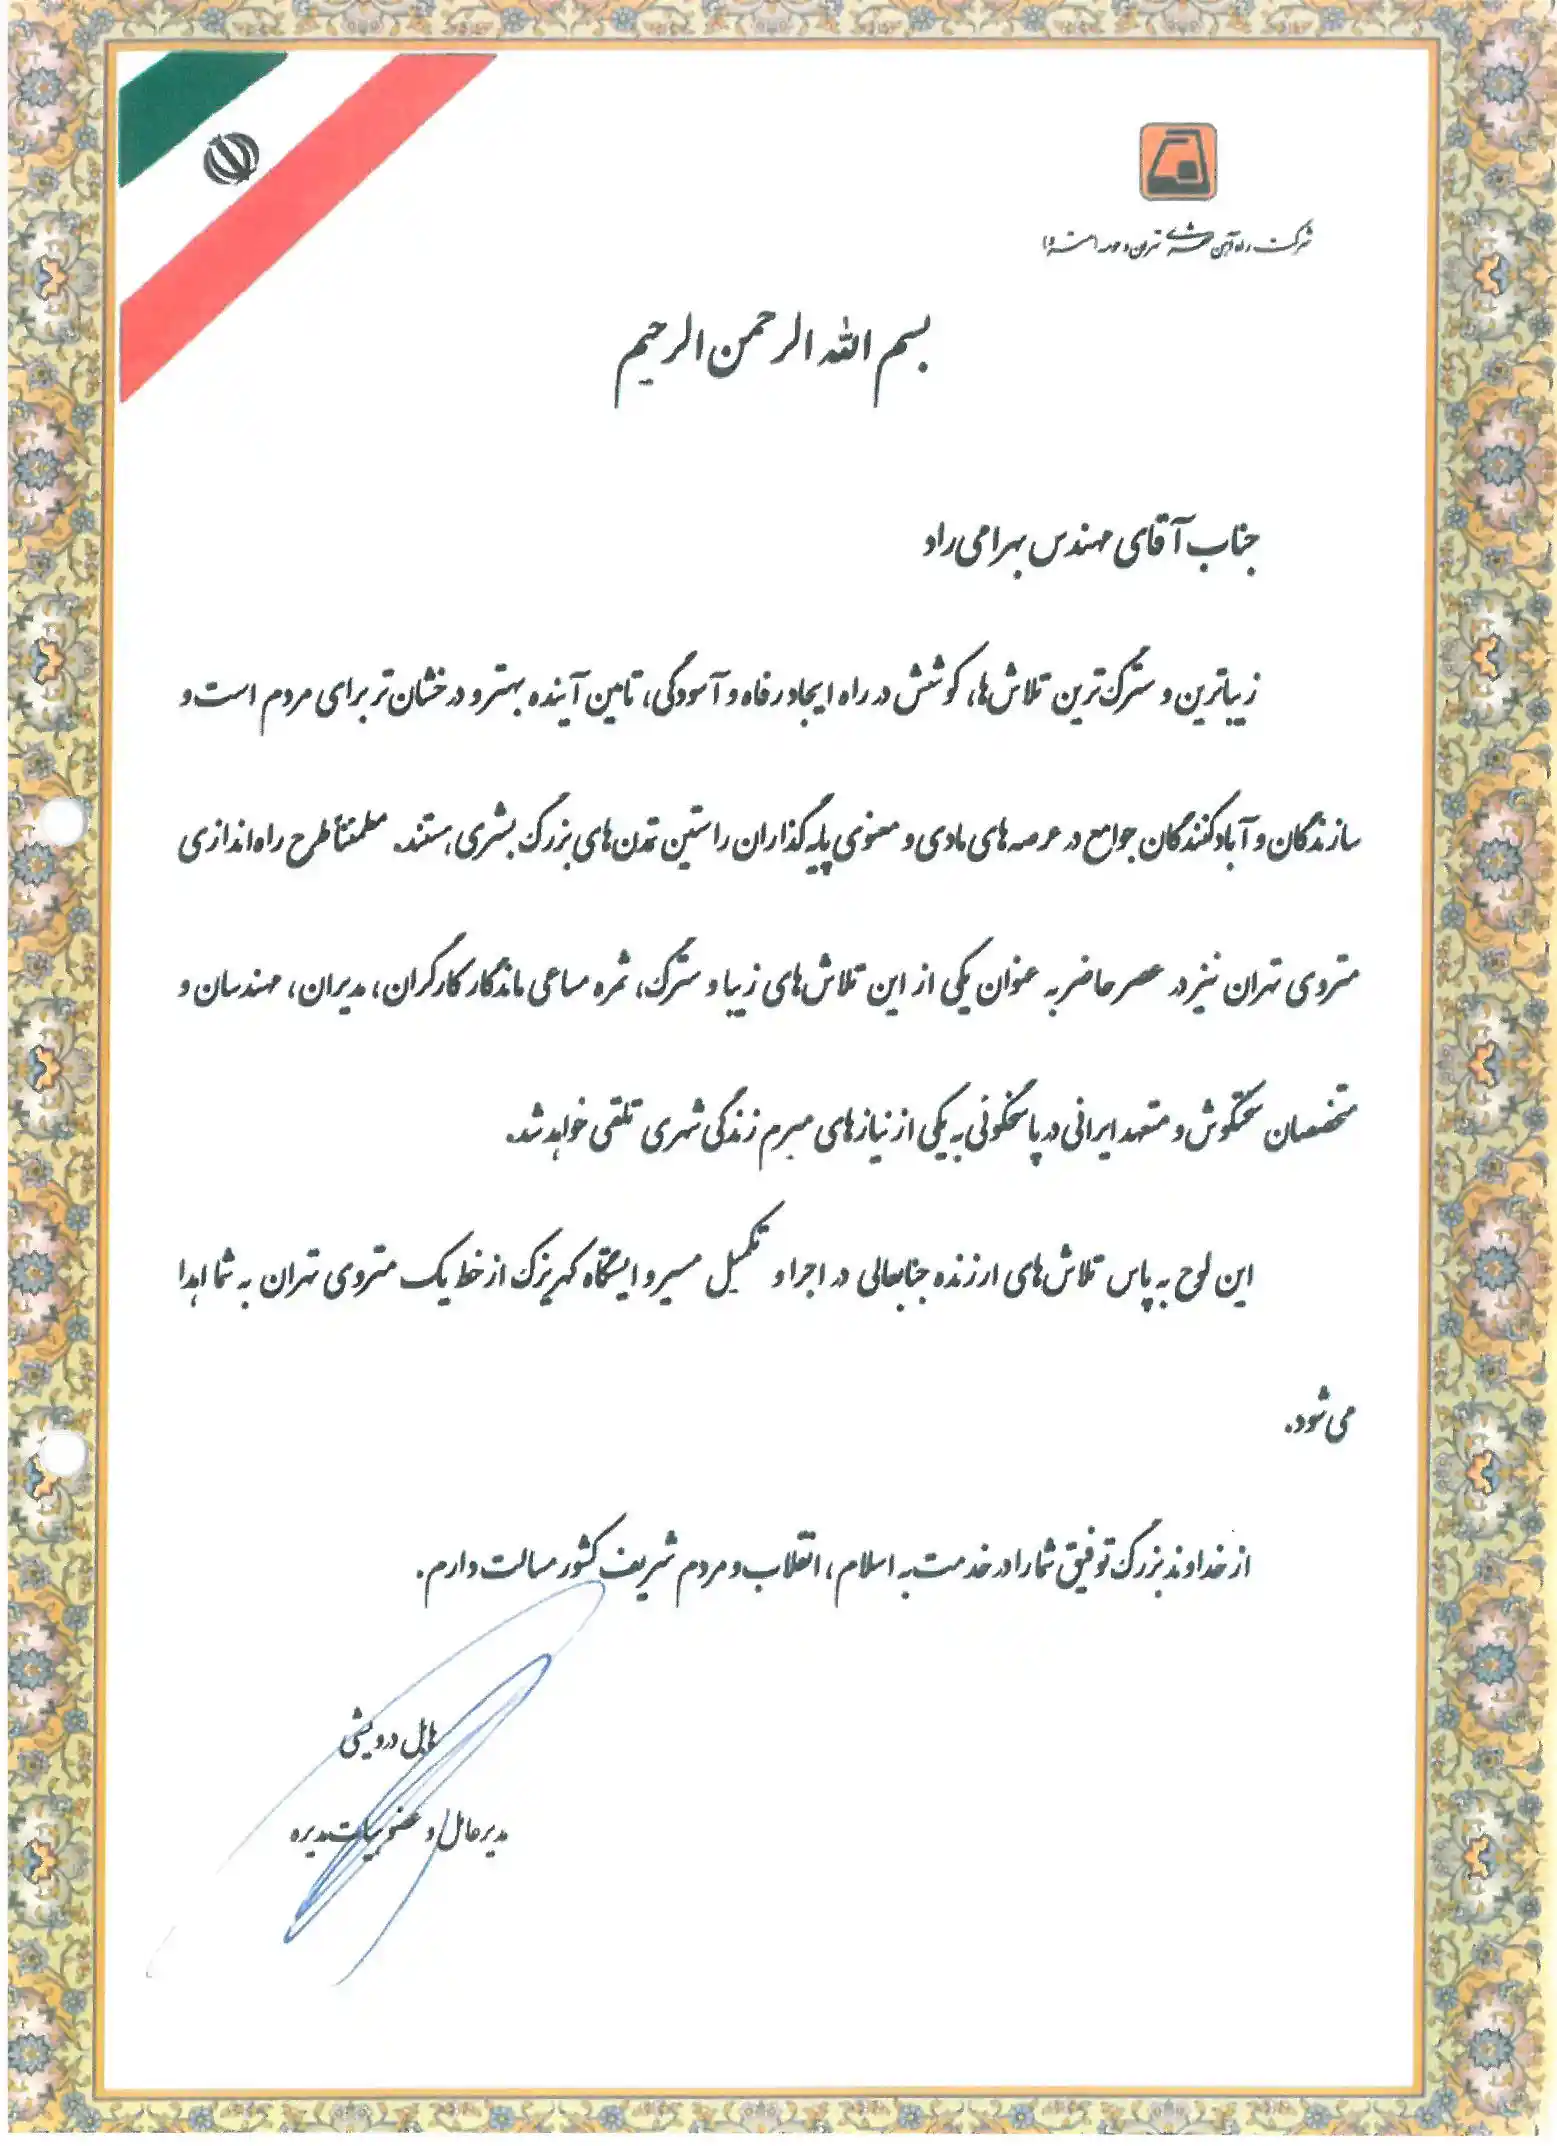 شرکت راه آهن شهری تهران و حومه (مترو)
بسم الله الرحمن الرحیم
جناب آقای مهندس بهرامی راد
زیباترین و سترگ‌ترین تلاش‌ها، کوشش در راه ایجاد رفاه و آسودگی، تامین آینده بهتر و درخشان‌تر برای مردم است و
سازندگان و آبادکنندگان جوامع در عرصه‌های مادی و معنوی پایه‌گذاران راستین تمدن‌های بزرگ بشری هستند. مطمئناً طرح راه‌اندازی
متروی تهران نیز در عصر حاضر به عنوان یکی از این تلاش‌های زیبا و سترگ، ثمره مساعی ماندگار کارگران، مدیران، مهندسان و
متخصصان سختکوش و متعهد ایرانی در پاسخگوئی به یکی از نیازهای مبرم زندگی شهری تلقی خواهد شد.
این لوح به پاس تلاش‌های ارزنده جنابعالی در اجرا و تکمیل مسیر و ایستگاه کهریزک از خط یک متروی تهران به شما اهدا
می‌شود.
از خداوند بزرگ توفیق شما را در خدمت به اسلام، انقلاب و مردم شریف کشور مسالت دارم.
هابیل درویشی
مدیرعامل و عضو هیات مدیره